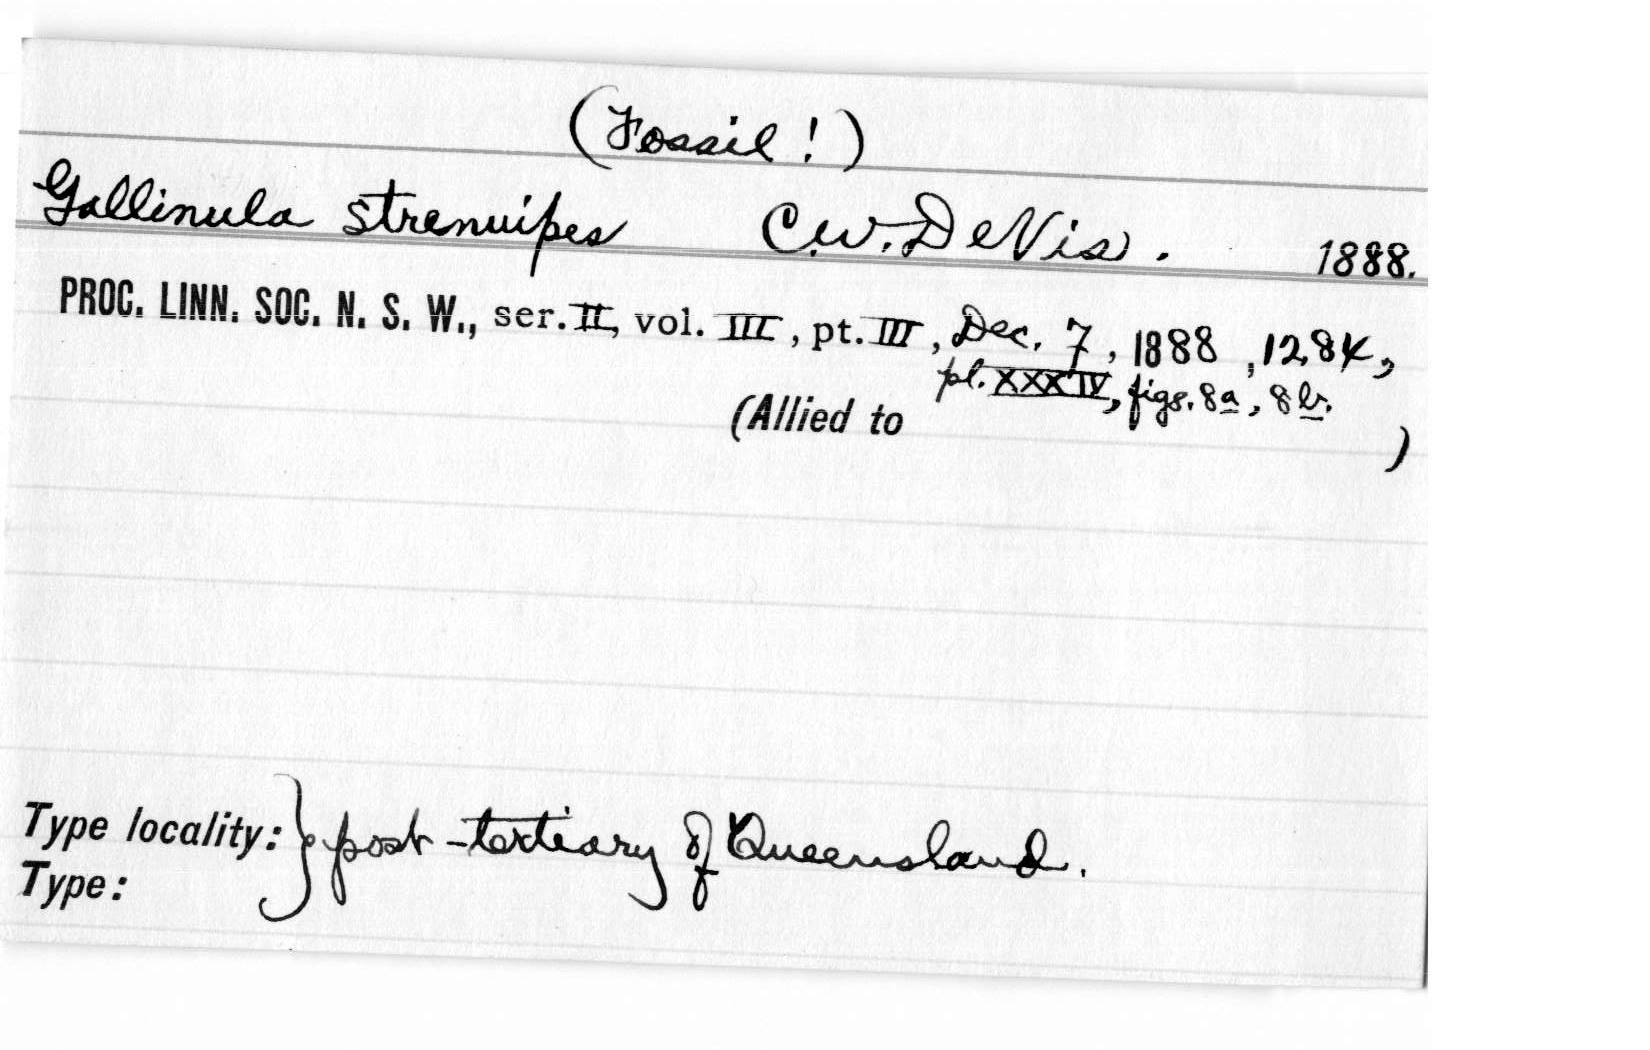 (Fossil!)
Gallinula strenuipes C.W. DeVis. 1888.
PROC. LINN. SOC. N. S. W., ser. II, vol. III, pt. III, Dec. 7, 1888, 1284,
pl. XXXIV, figs. 8a, 8b.
(Allied to )
Type locality: } post-tertiary of Queensland.
Type: